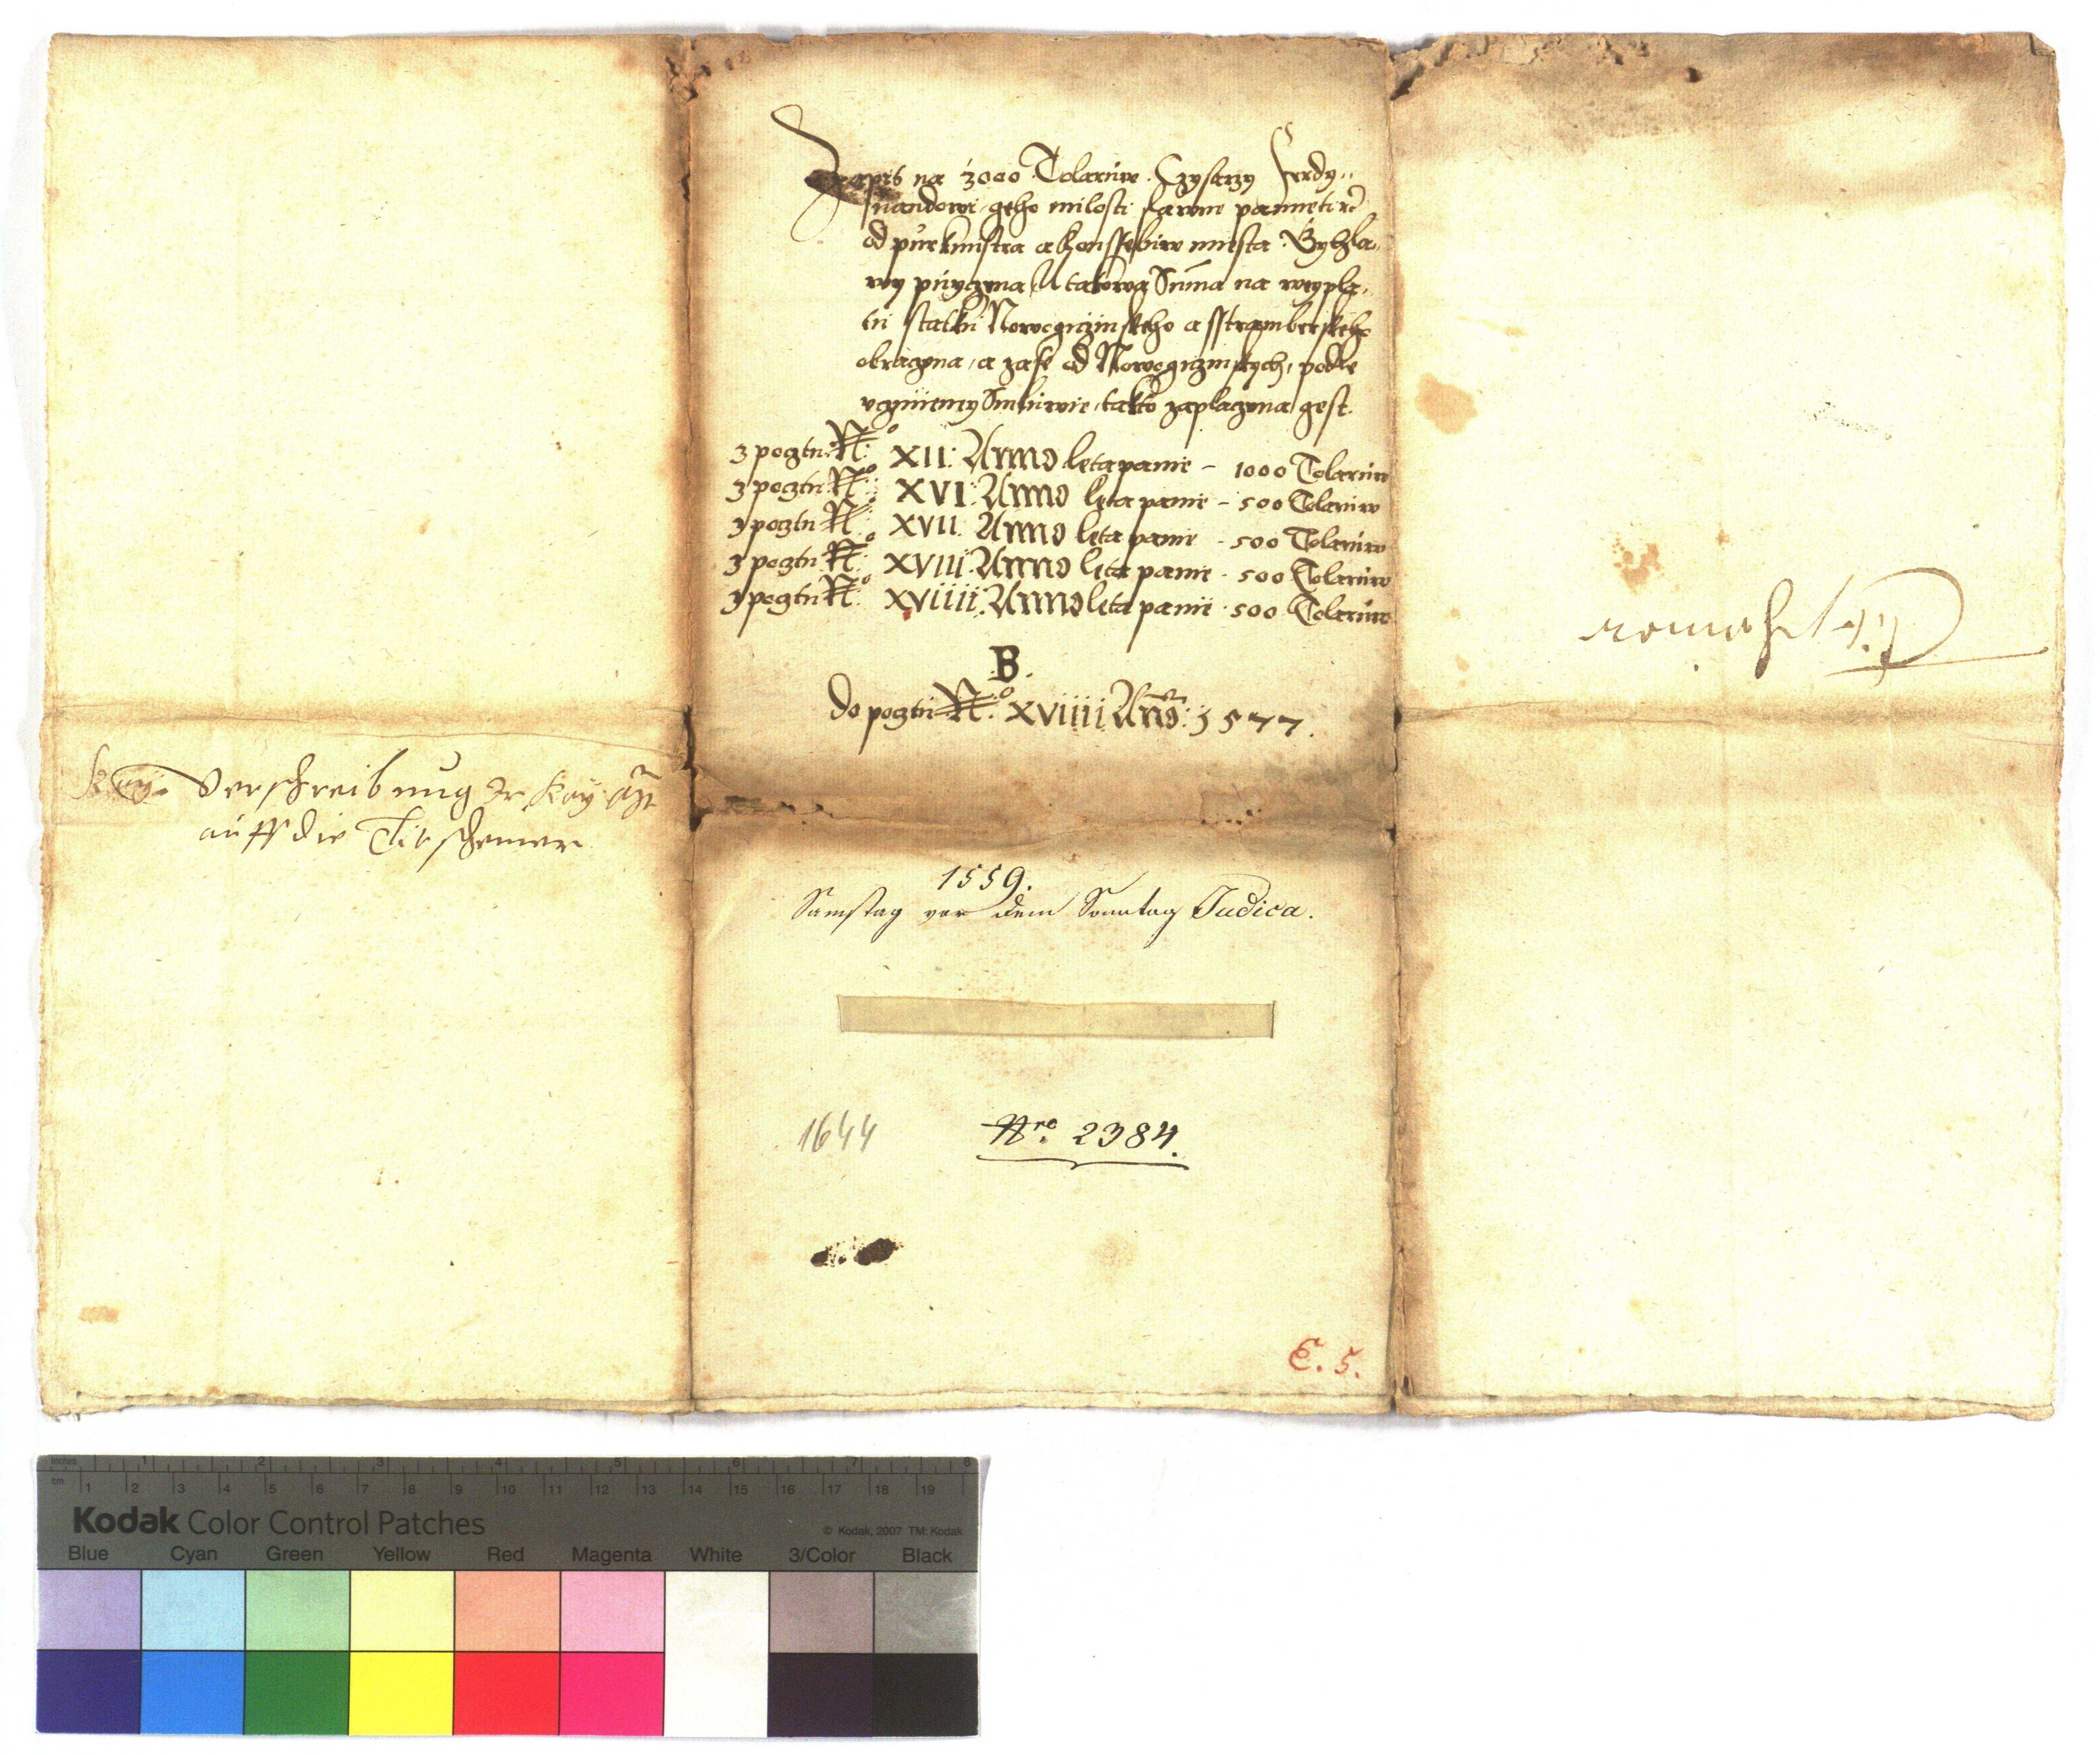 Zapis na 3000 Tolarůw Czysarzy Ferdy„
nandowi geho milosti slawne pamieti ꝛc̃
od purkmistra a Konsseluw miesta Gyhla„
wy půgczena / A takowa Suma na weypla„
tu statku Nowogiczinskeho a sstramberskeho
obraczena / a zase od Nowogiczinskych / podle
vczinieney Smluwie / takto zaplaczena gest.
z pocztu N:o XII: Anno leta panie – 1000 Tolarůw
z pocztu N:o XVI: Anno leta panie – 500 Tolarůw
z pocztu N:o XVII: Anno leta panie – 500 Tolarůw
z pocztu N:o XVIII: Anno leta panie – 500 Tolarůw
z pocztu N:o XVIIII: Anno leta panie – 500 Tolarůw
B.
Do pocztu N:o XVIIII Anno: 1577.
Verschreibung Ir Kay: Mt
auff die Titscheiner
1559.
Samstag vor dem Sonntag Judica.
1644
Nro. 2384.
E. 5.
inches 1 2 3 4 5 6 7 8
cm 1 2 3 4 5 6 7 8 9 10 11 12 13 14 15 16 17 18 19
Kodak Color Control Patches
© Kodak, 2007 TM: Kodak
Blue Cyan Green Yellow Red Magenta White 3/Color Black